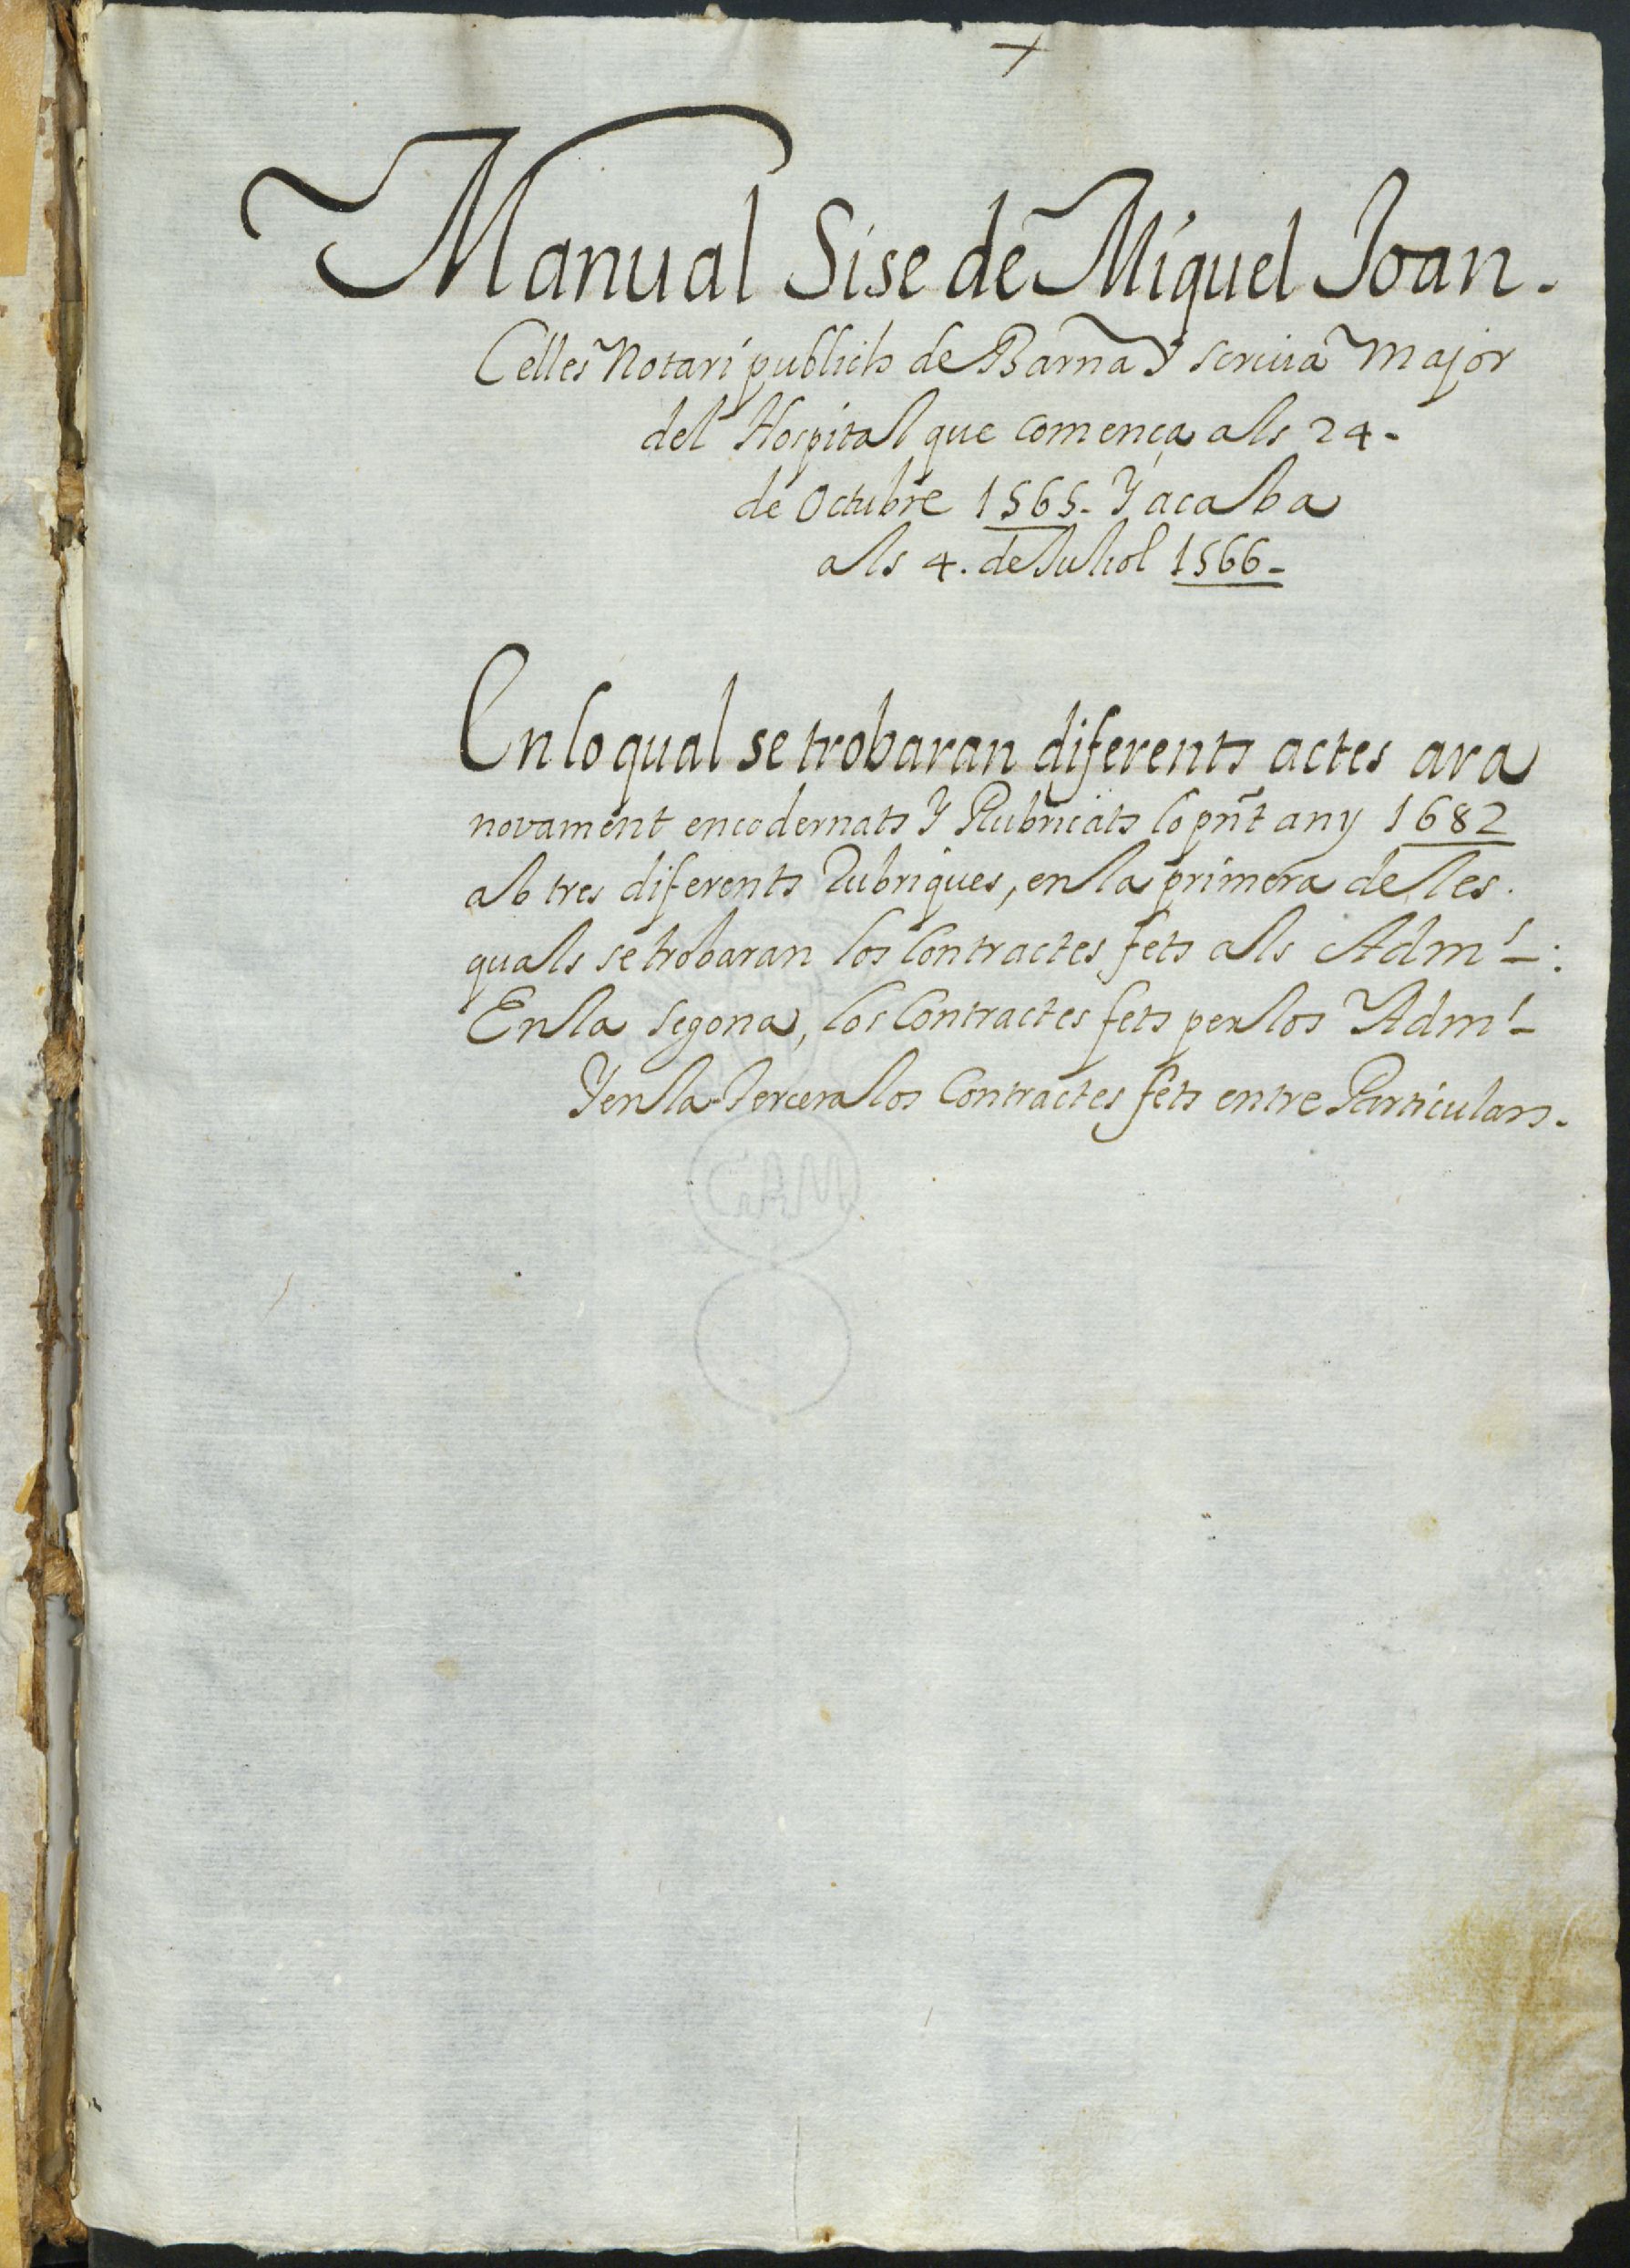 Manual Sise de Miquel Joan.
Celles Notari publich de Barna Y scriuà Major
del Hospital que comença als 24-
de Octubre 1565- Y acaba
als 4. de Juliol 1566-
En lo qual se trobaran diferents actes ara
novament encodernats Y Rubricats lo pñt any 1682
ab tres diferents Rubriques, en la primera de les.
quals se trobaran los Contractes fets als Adm.ʳˢ:
En la segona, los Contractes fets per los Adm.ʳˢ
Y en la Tercera los Contractes fets entre Particulars.